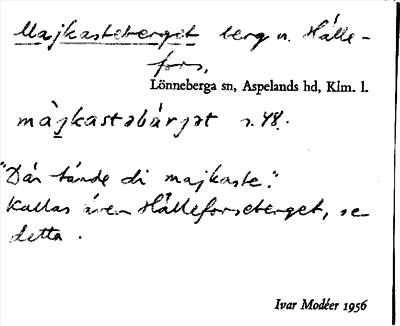 Majkasteberget berg n. Hålle-
fors,
Lönneberga sn, Aspelands hd, Klm. l.
màjkastəbárjət s. 48.
"Där tände di majkaste."
Kallas även Hålleforseberget, se
detta.
Ivar Modéer 1956